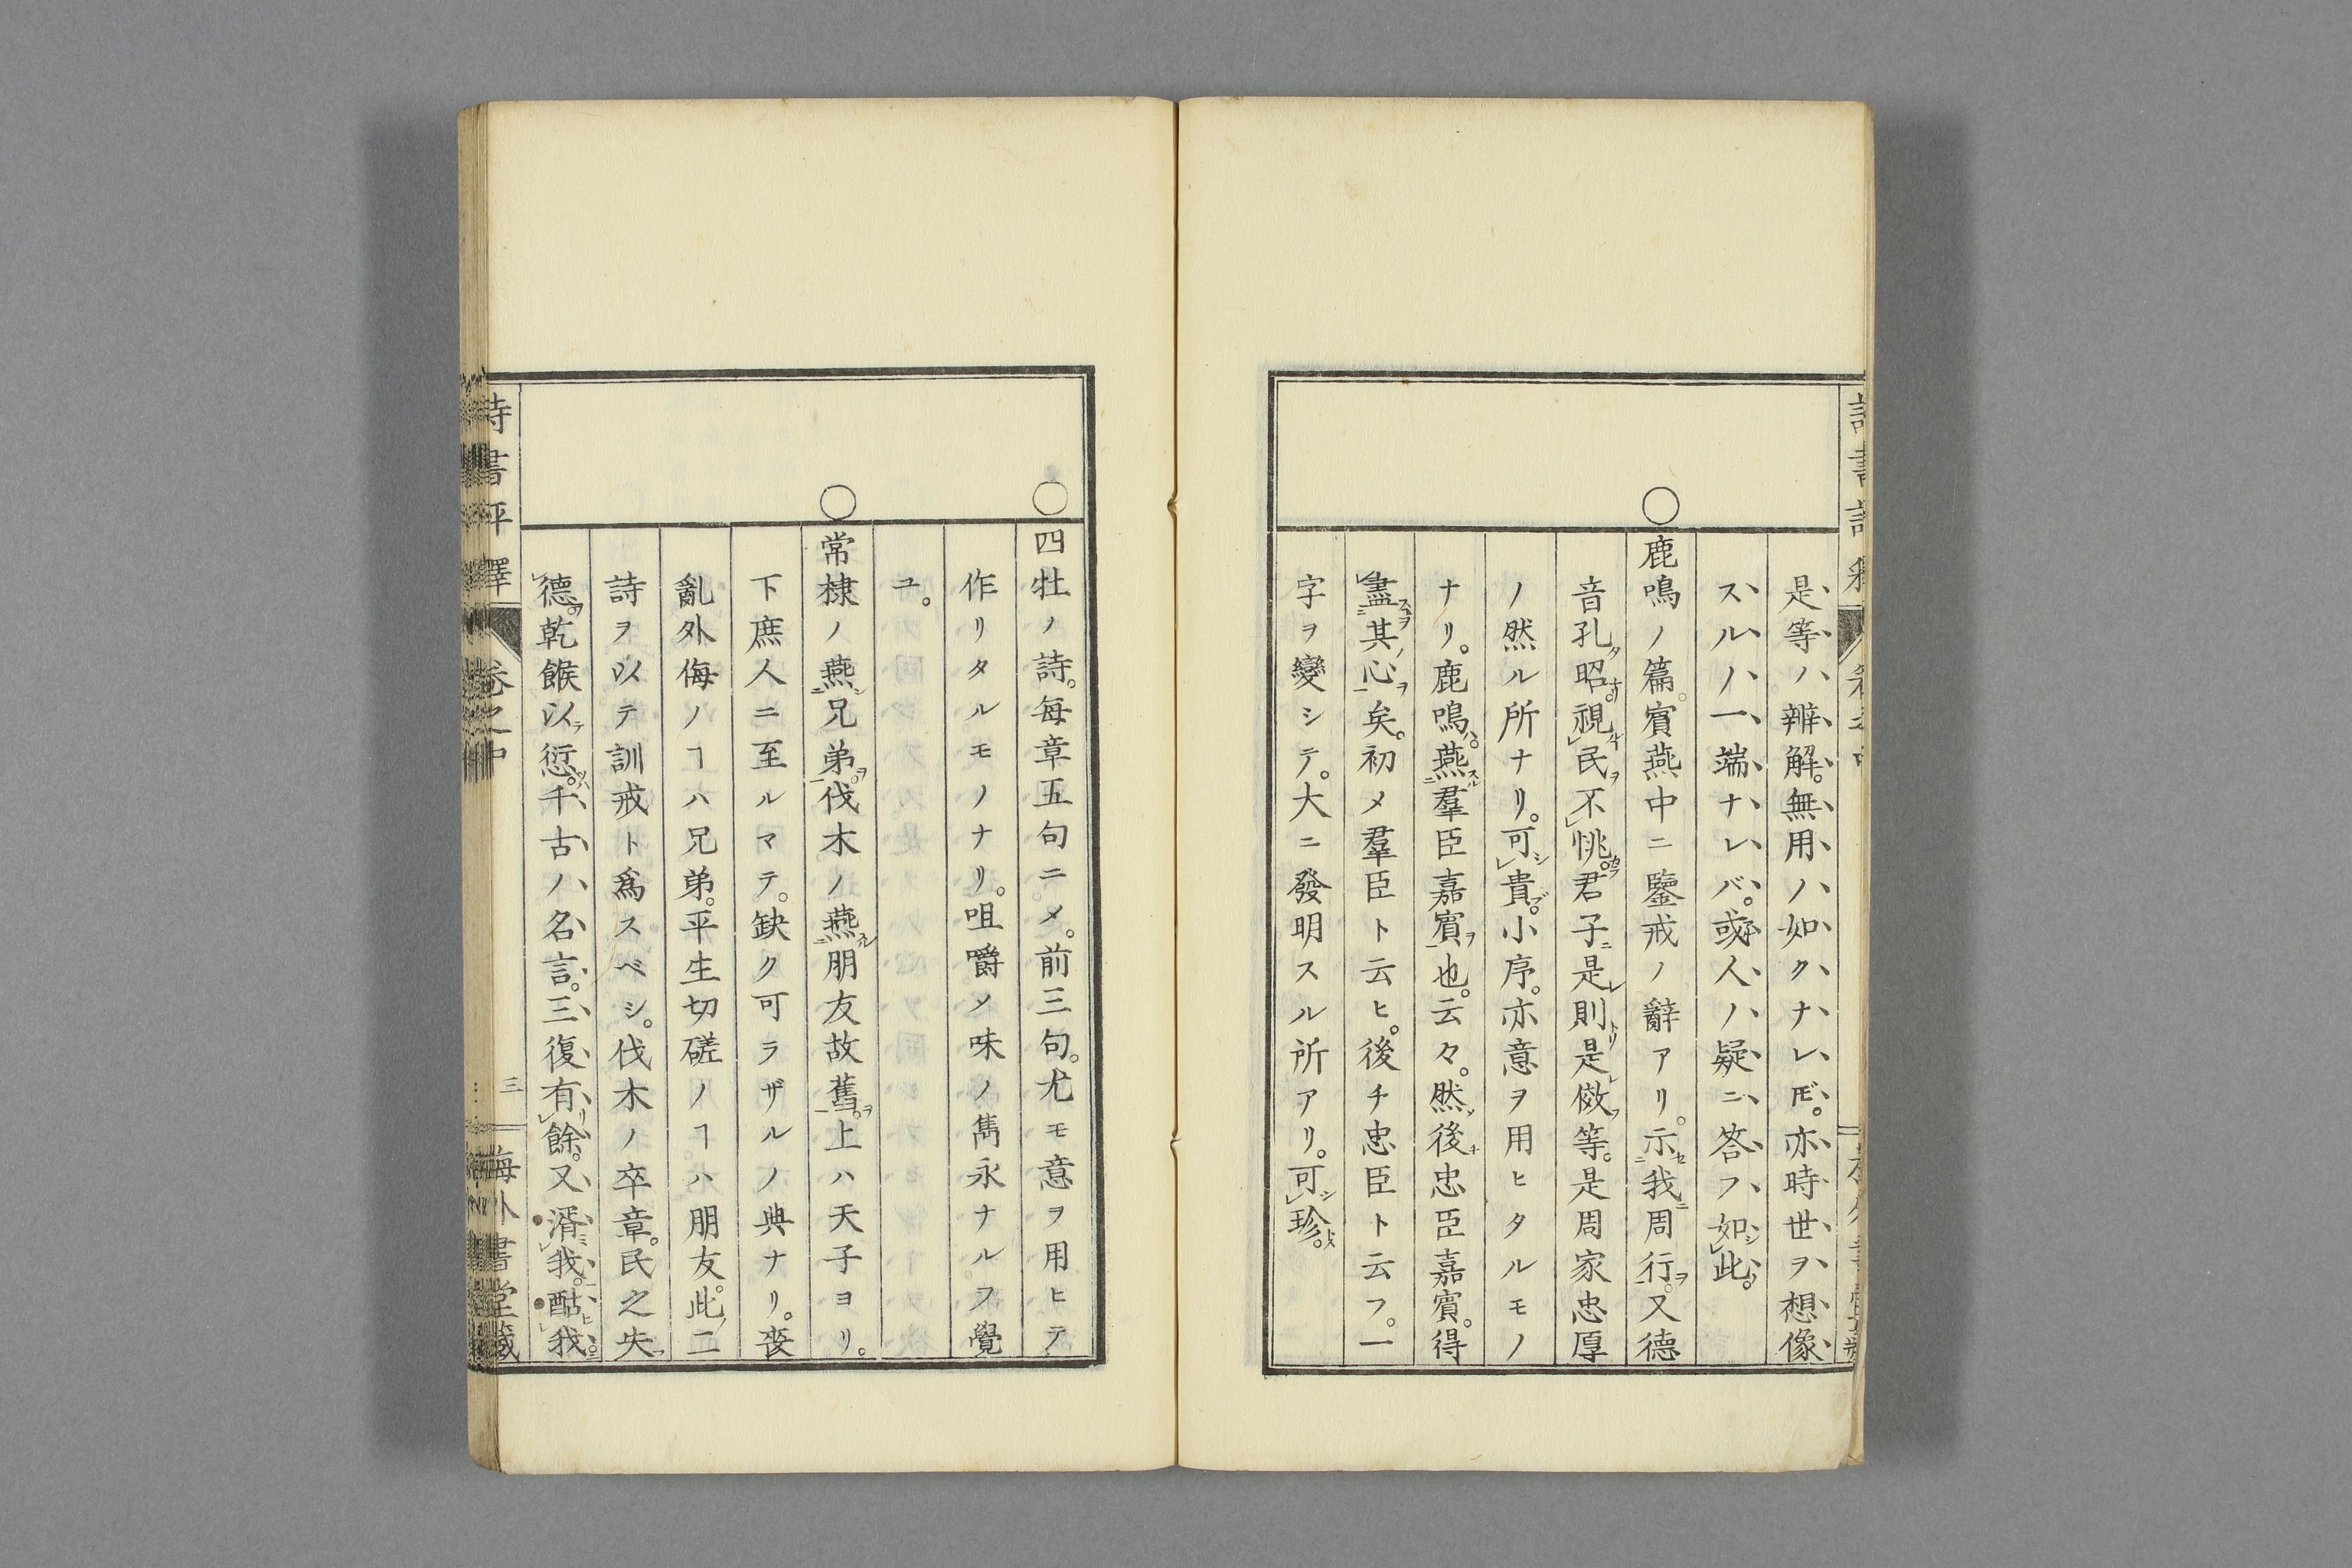 是等ハ辨解。無用ノ如クナレ𪜈。亦時世ヲ想像
スルノ一端ナレバ。或人ノ疑ニ答フ如シ此。
○鹿鳴ノ篇。賓燕中ニ鑒戒ノ辭アリ。示我周行。又德
音孔昭。視民不恌。君子是則是傚等。是周家忠厚
ノ然ル所ナリ。可貴。小序。亦意ヲ用ヒタルモノ
ナリ。鹿鳴。燕羣臣嘉賓也。云々。然後忠臣嘉賓。得
盡其心矣。初メ羣臣ト云ヒ。後チ忠臣ト云フ。一
字ヲ變シテ。大ニ發明スル所アリ。可珍。
○四牡ノ詩。每章五句ニメ。前三句。尤モ意ヲ用ヒテ
作リタルモノナリ。咀嚼メ味ノ雋永ナルヲ覺
ユ。
○常棣ノ燕兄弟。伐木ノ燕朋友故舊。上ハ天子ヨリ。
下庶人ニ至ルマテ。缺ク可ラザルノ典ナリ。喪
亂外侮ノヿハ兄弟。平生切磋ノヿハ朋友。此二
詩ヲ以テ訓戒ト爲スベシ。伐木ノ卒章。民之失
德。乾餱以愆。千古ノ名言。三復有餘。又湑我。酤我。
詩書評釋
卷之中
三
海外書堂藏